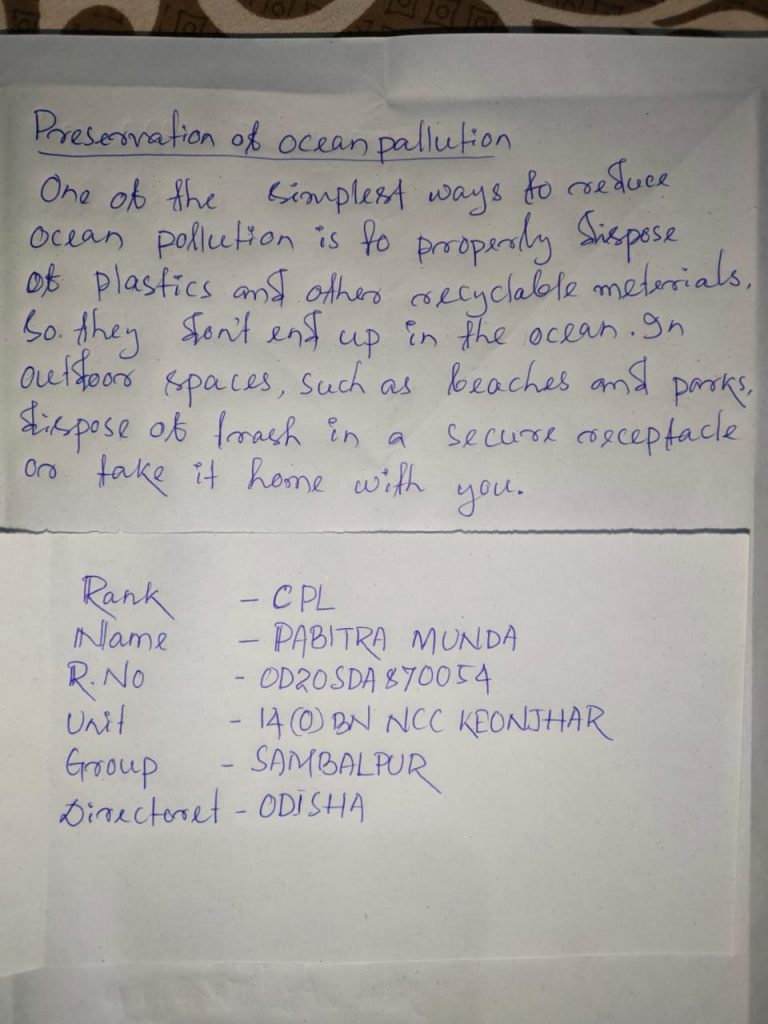 Preservation of ocean pallution
One of the simplest ways to reduce
ocean pollution is to properly dispose
of plastics and other recyclable meterials,
so. they don't end up in the ocean. In
outdoor spaces, such as beaches and parks,
dispose of trash in a secure receptacle
or take it home with you.
Rank - CPL
Name - PABITRA MUNDA
R.No - OD20SDA870054
Unit - 14(O) BN NCC KEONJHAR
Group - SAMBALPUR
Directoret - ODISHA